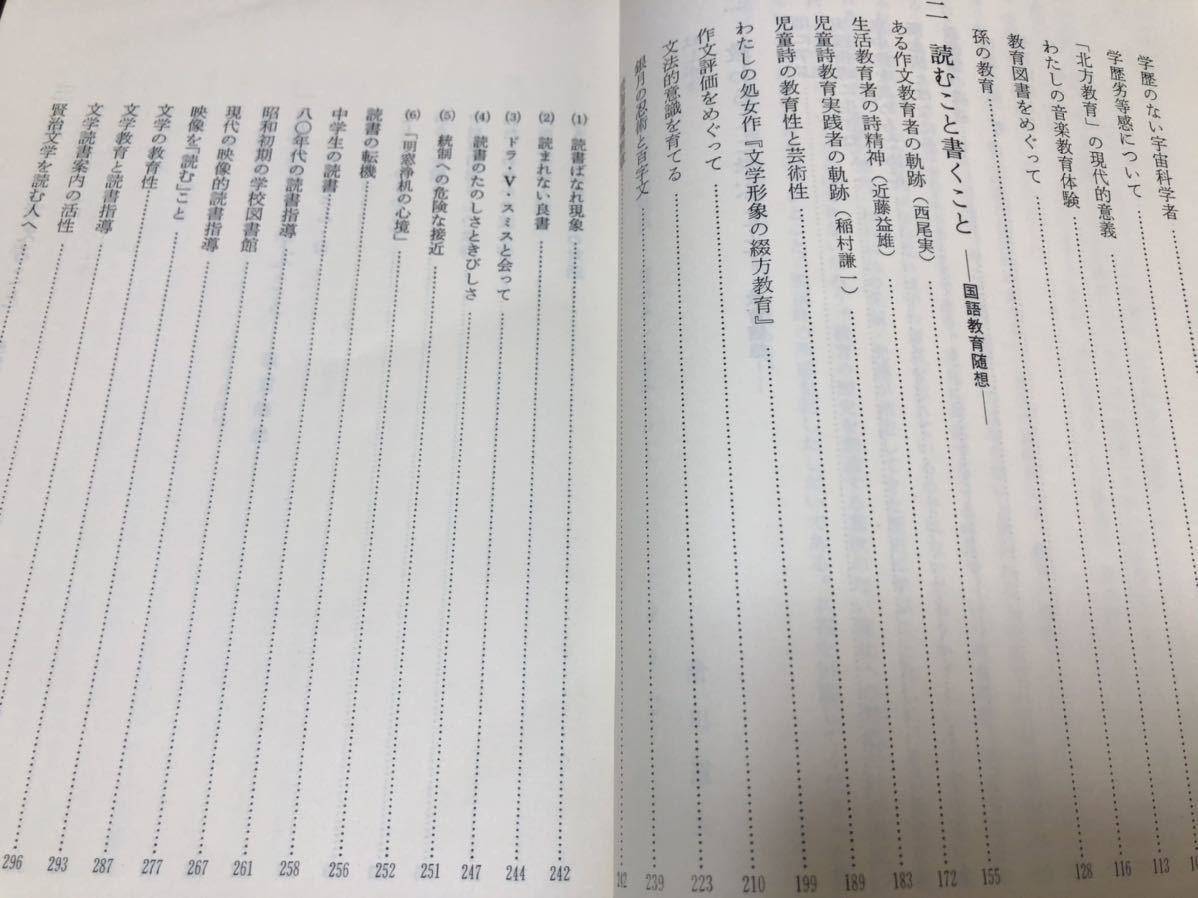 学歴のない宇宙科学者
学歴劣等感について
「北方教育」の現代的意義
わたしの音楽教育体験 113
教育図書をめぐって 116
孫の教育 128
二 読むこと書くこと ――国語教育随想――
ある作文教育者の軌跡(西尾実) 155
生活教育者の詩精神(近藤益雄) 172
児童詩教育実践者の軌跡(稲村謙一) 183
児童詩の教育性と芸術性 189
わたしの処女作『文学形象の綴方教育』 199
作文評価をめぐって 210
文法的意識を育てる 223
銀月の忍術と自学文 239
242
(1) 読書ばなれ現象 242
(2) 読まれない良書 244
(3) ドラ・V・スミスと会って 247
(4) 読書のたのしさときびしさ 251
(5) 統制への危険な接近 252
(6) 「明窓浄机の心境」 256
読書の転機 258
中学生の読書 261
八〇年代の読書指導 267
昭和初期の学校図書館 277
現代の映像的読書指導 287
映像を「読む」こと 293
文学の教育性 296
文学教育と読書指導
文学読書案内の活性
賢治文学を読む人へ